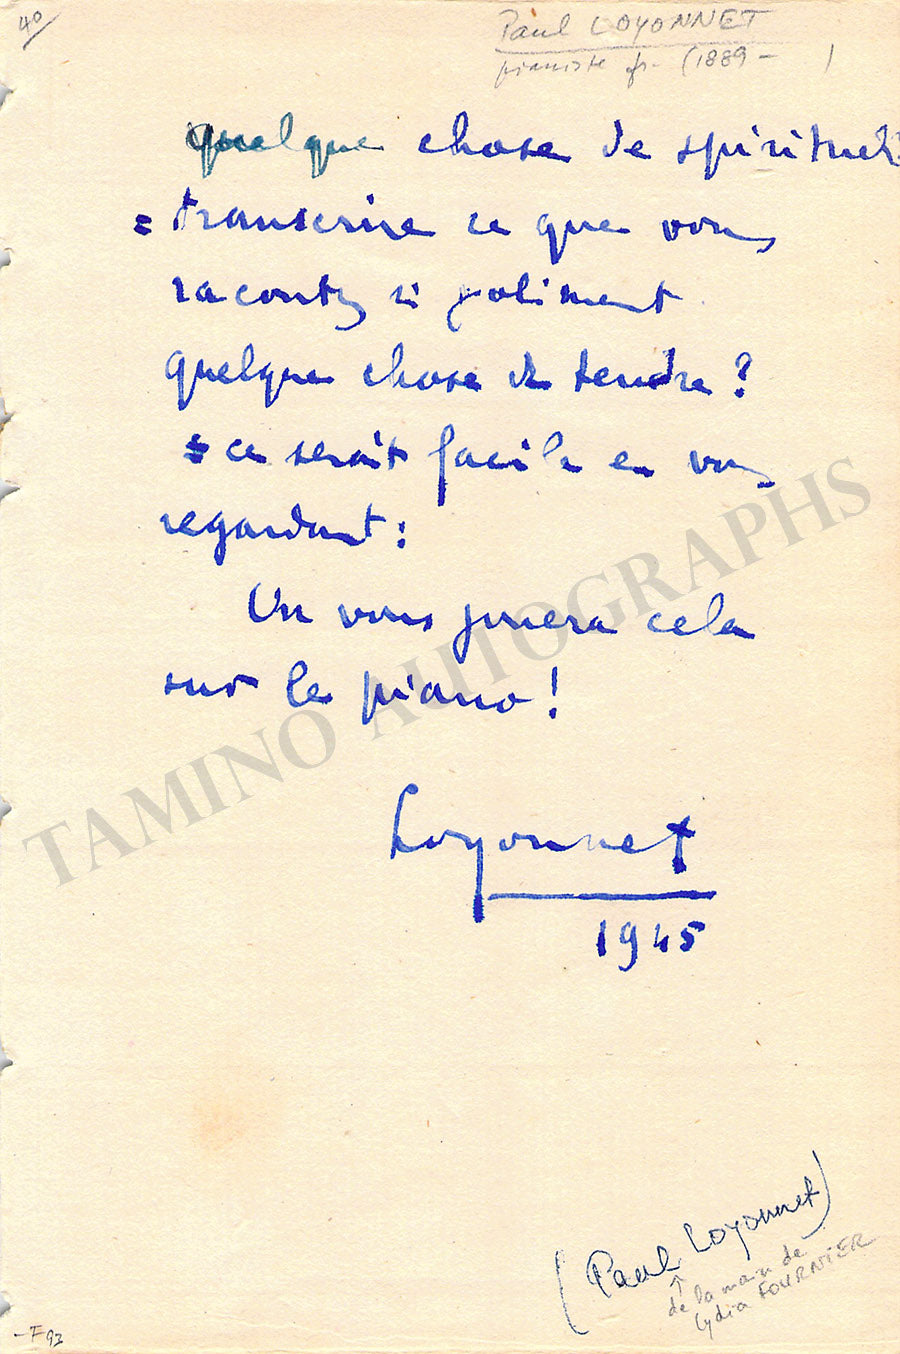 40
Paul LOYONNET
pianiste fr. (1889 - )
quelque chose de spirituel?
= transcrire ce que vous
racontez si joliment
quelque chose de tendre?
= ce serait facile en vous
regardant:
On vous jouera cela
sur le piano!
Loyonnet
1945
TAMINO AUTOGRAPHS
(Paul Loyonnet)
↑
de la main de
Lydia FOURNIER
-F93